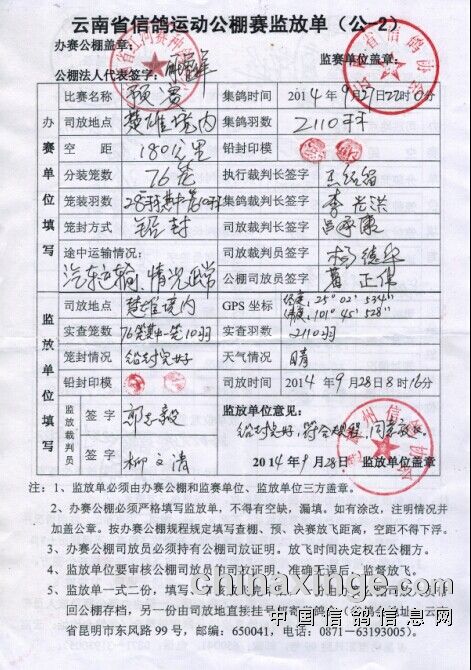 云南省信鸽运动公棚赛监放单（公-2）
办赛公棚盖章：
监赛单位盖章：
公棚法人代表签字：
办赛单位填写
比赛名称 预赛
集鸽时间 2014年9月27日22时0分
司放地点 楚雄境内
集鸽羽数 2110羽
空距 180公里
铅封印模
分装笼数 76笼
执行裁判长签字
笼装羽数
集鸽裁判长签字 李光洪
笼封方式 铅封
司放裁判长签字
途中运输情况：
汽车运输，情况正常
司放裁判员签字 杨德华
公棚司放员签字
监放单位填写
司放地点 楚雄境内
GPS 坐标 25°02′534″
101°45′528″
实查笼数 76笼其中一笼10羽
实查羽数 2110羽
笼封情况 铅封完好
天气情况 晴
铅封印模
司放时间 2014年9月28日8时16分
监放裁判员
签字 郭志毅
签字 柳文清
监放单位意见：
铅封完好，符合规程，同意放飞。
2014年9月28日 监放单位盖章
注：1、监放单必须由办赛公棚和监赛单位、监放单位三方盖章。
2、办赛公棚必须严格填写监放单，不得有空缺，漏填。如有涂改，注明情况并
加盖公章。按办赛公棚规程规定填写查棚、预、决赛放飞距离，空距不得下浮。
3、办赛公棚司放员必须持有公棚司放证明。放飞时间决定权在公棚方。
4、监放单位要审核公棚司放员司放证明，准确无误后，监督放飞。
5、监放单一式二份，填写、
回公棚存档，另一份由司放地直接挂号邮寄
省昆明市东风路 99 号，邮编：650041，电话：0871—63193005)。
www.chinaxinge.com
中国信鸽信息网